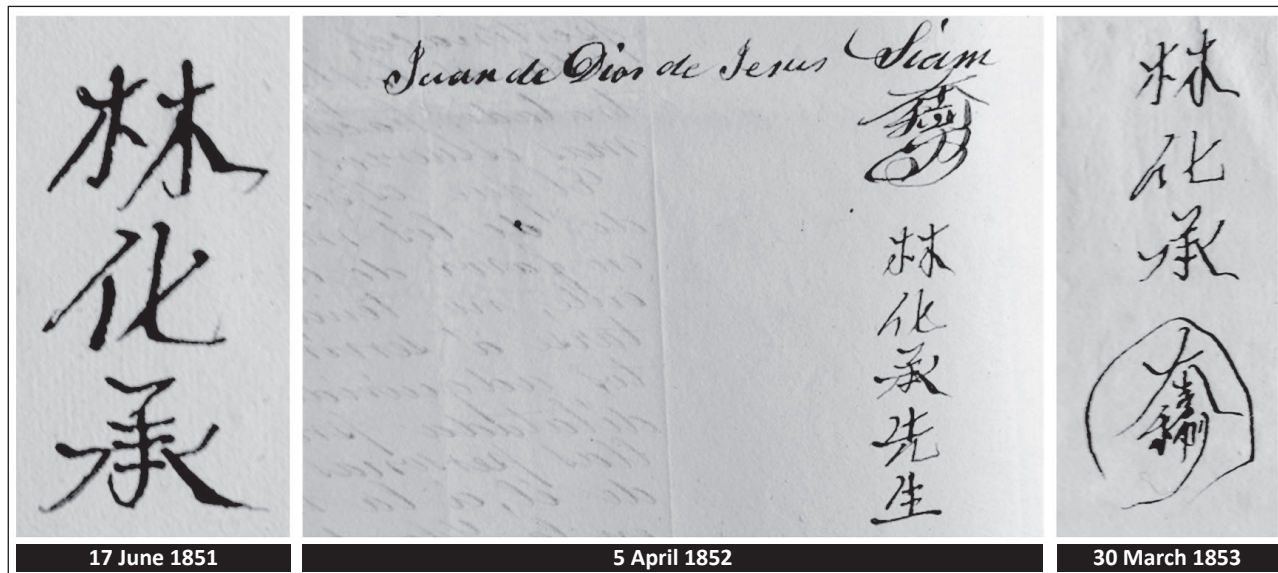 林化承
17 June 1851
Juan de Dios de Jesus Siam
林化承先生
5 April 1852
林化承
30 March 1853